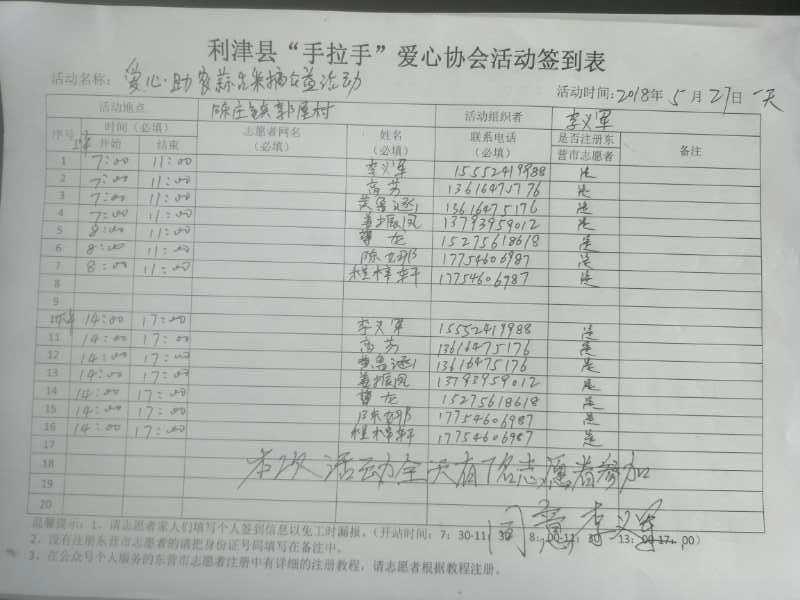 利津县“手拉手”爱心协会活动签到表
活动名称： 爱心·助农蒜苔采摘公益活动
活动时间：2018年 5 月 27日 一天
活动地点 陈庄镇郭屋村 活动组织者 李义军
序号 时间（必填） 志愿者网名（必填） 姓名（必填） 联系电话（必填） 是否注册东营市志愿者 备注
开始 结束
1 7:00 11:00 李义军 15552419988 是
2 7:00 11:00 高芳 13616475176 是
3 7:00 11:00 13616475176 是
4 7:00 11:00 姜振凤 13793959012 是
5 8:00 11:00 龙 15275618618 是
6 8:00 11:00 陈 17754606987 是
7 8:00 11:00 程梓轩 17754606987 是
8
9
下午 14:00 17:00 李义军 15552419988 是
11 14:00 17:00 高芳 13616475176 是
12 14:00 17:00 13616475176 是
13 14:00 17:00 姜振凤 13793959012 是
14 14:00 17:00 龙 15275618618 是
15 14:00 17:00 陈 17754606987 是
16 14:00 17:00 程梓轩 17754606987 是
17
18 本次活动全天有7名志愿者参加
19
20
李义军
温馨提示：1、请志愿者家人们填写个人签到信息以免工时漏报。（开站时间：7：30-11：30 8：00-11：30 13：00-17：00）
2、没有注册东营市志愿者的请把身份证号码填写在备注中。
3、在公众号个人服务的东营市志愿者注册中有详细的注册教程，请志愿者根据教程注册。